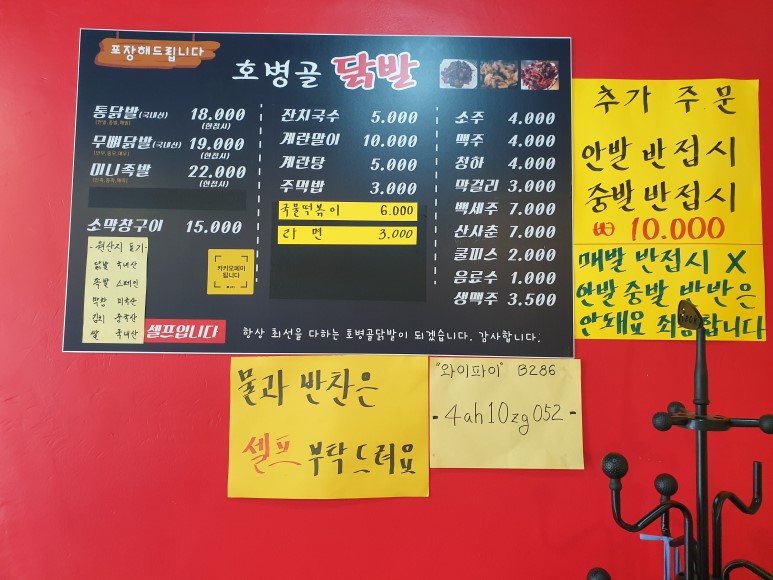 포장해드립니다
호병골 닭발
통닭발(국내산) 18.000
(한접시)
무뼈닭발(국내산) 19.000
(한접시)
미니족발 22.000
(한접시)
소막창구이 15.000
잔치국수 5.000
계란말이 10.000
계란탕 5.000
주먹밥 3.000
국물떡볶이 6.000
라면 3.000
소주 4.000
맥주 4.000
청하 4.000
막걸리 3.000
백세주 7.000
산사춘 7.000
쿨피스 2.000
음료수 1.000
생맥주 3.500
-원산지 표기-
닭발 국내산
족발 스페인
막창 미국산
김치 중국산
쌀 국내산
카카오페이
됩니다
셀프입니다
항상 최선을 다하는 호병골닭발이 되겠습니다. 감사합니다.
추가 주문
안발 반접시
중발 반접시
₩ 10.000
매발 반접시 X
안발 중발 반반은
안돼요 죄송합니다
물과 반찬은
셀프 부탁드려요
"와이파이" B286
- 4ah10zg052 -